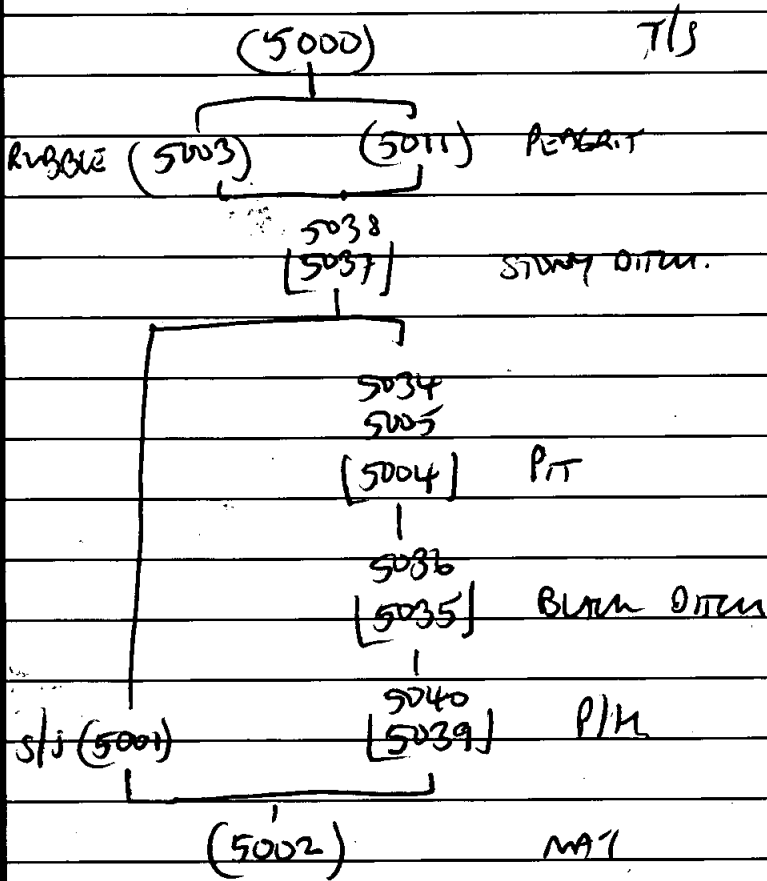 (5000) T/S
RUBBLE (5003) (5011) PEAGRIT
5038
[5037] STONY DITCH.
5034
5005
[5004] PIT
5036
[5035] BLACK DITCH
5040
s/s (5001) [5039] P/H
(5002) NAT